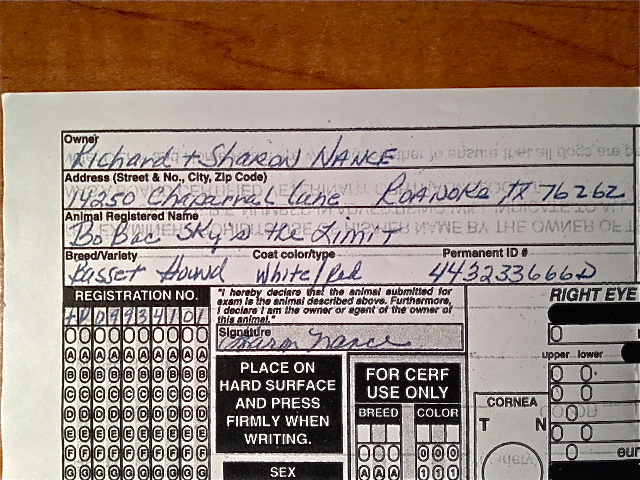 Owner
Richard + Sharon Nance
Address (Street & No., City, Zip Code)
14250 Chaparral Lane Roanoke, TX 76262
Animal Registered Name
BoBac Sky's the Limit
Breed/Variety Coat color/type Permanent ID #
Basset Hound White/Red 443233666D
REGISTRATION NO.
"I hereby declare that the animal submitted for
exam is the animal described above. Furthermore,
I declare I am the owner or agent of the owner of
this animal."
RIGHT EYE
Signature
Sharon Nance
upper lower
PLACE ON
HARD SURFACE
AND PRESS
FIRMLY WHEN
WRITING.
FOR CERF
USE ONLY
BREED COLOR
CORNEA
T N
SEX